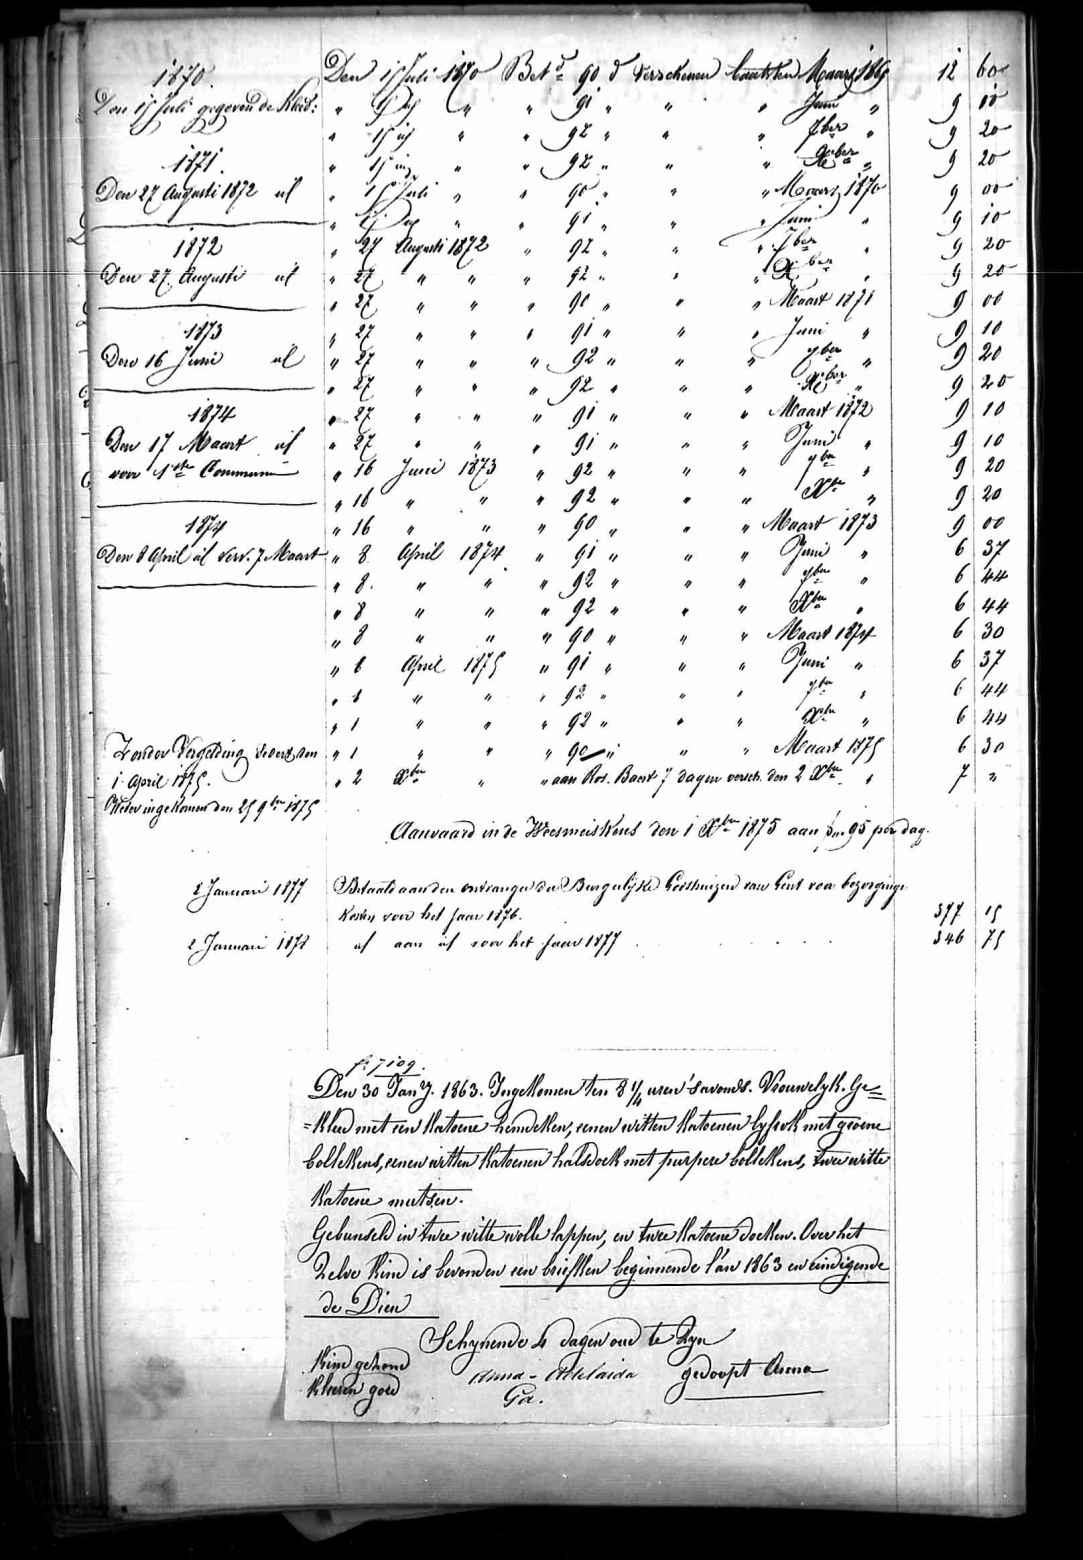 1870.
Den 15 Juli gegeven de Kleed:
1871.
Den 27 Augusti 1872 id
1872
Den 27 Augusti id
1873
Den 16 Juni id
1874
Den 17 Maart id
voor 1ste Communie
1874
Den 8 April id Verv. 7 Maart
Den 15 Juli 1870 Betd 90 d verschenen laatsten Maart 1869 12 60
" " " " 91 " " " Juni " 9 10
" 15 id " " 92 " " " 7ber " 9 20
" 15 id " " 92 " " " Xber " 9 20
" 15 Juli " " 90 " " " Maart 1870 9 00
" " " " 91 " " " Juni " 9 10
" 27 Augusti 1872 " 92 " " " 7ber " 9 20
" 27 " " " 92 " " " Xber " 9 20
" 27 " " " 90 " " " Maart 1871 9 00
" 27 " " " 91 " " " Juni " 9 10
" 27 " " " 92 " " " 7ber " 9 20
" 27 " " " 92 " " " Xber " 9 20
" 27 " " " 91 " " " Maart 1872 9 10
" 27 " " " 91 " " " Juni " 9 10
" 16 Juni 1873 " 92 " " " 7ber " 9 20
" 16 " " " 92 " " " Xber " 9 20
" 16 " " " 90 " " " Maart 1873 9 00
" 8 April 1874 " 91 " " " Juni " 6 37
" 8 " " " 92 " " " 7ber " 6 44
" 8 " " " 92 " " " Xber " 6 44
" 8 " " " 90 " " " Maart 1874 6 30
" 8 April 1875 " 91 " " " Juni " 6 37
" 8 " " " 92 " " " 7ber " 6 44
" 1 " " " 92 " " " Xber " 6 44
" 1 " " " 90 " " " Maart 1875 6 30
" 2 Xber " " aan Ros. Baert 7 dagen versch. den 2 Xber " 7 "
Zonder Vergelding sedert den
1 April 1875.
Weder ingekomen den 25 9ber 1875
Aanvaard in de Weesmeiskens den 1 Xber 1875 aan 95 per dag.
2 Januari 1877 Betaald aan den ontvanger der Burgerlyke Godshuizen van Gent voor bezorgings
kosten voor het jaar 1876. 377 15
2 Januari 1878 id aan id voor het jaar 1877 346 75
f. 7 109.
Den 30 Jany. 1863. Ingekomen ten 8 1/4 uren 's avonds. Vrouwelyk. Ge=
=kleed met een Katoene hemdeken, eenen witten Katoenen lyfrok met groene
bollekens, eenen witten Katoenen halsdoek met purpere bollekens, twee witte
Katoene mutsen.
Gebunseld in twee witte wolle lappen, en twee Katoene doeken. Over het
Zelve Kind is bevonden een briefken beginnende l'an 1863 en eindigende
de Dieu
Schynende 4 dagen oud te Zyn
Kind gezond
Kleeren goed
Anna - Adelaida
Ga.
gedoopt Anna